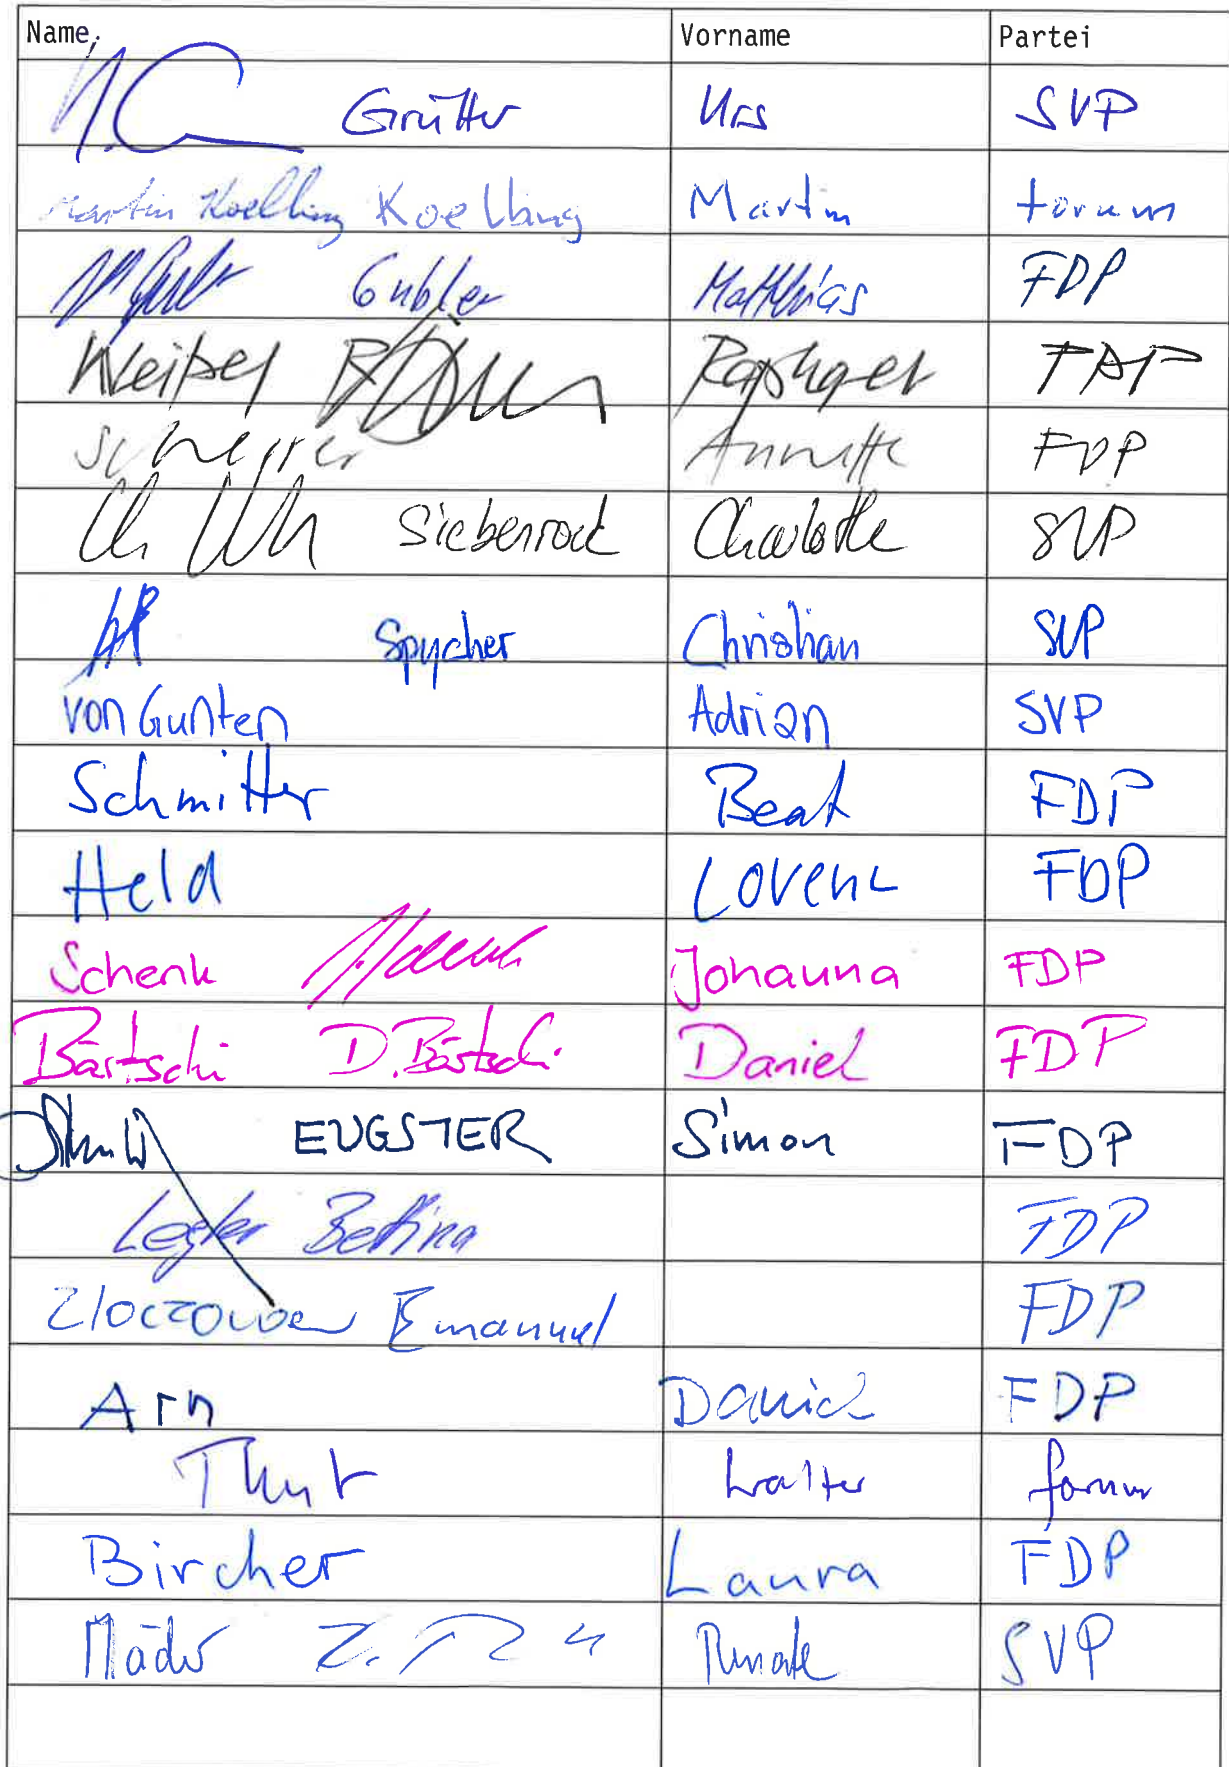 Name Vorname Partei
Grütter Urs SVP
Martin Koelbing Koelbing Martin forum
Gubler Matthias FDP
Weibel Raphael FDP
Scherrer Annette FDP
Siebenrock Charlotte SVP
Spycher Christian SVP
von Gunten Adrian SVP
Schmitter Beat FDP
Held Lorenz FDP
Schenk Johanna FDP
Bärtschi D. Bärtschi Daniel FDP
EUGSTER Simon FDP
Legler Bettina FDP
Zloczower Emanuel FDP
Arn Daniel FDP
Thut Walter forum
Bircher Laura FDP
Mäder Renate SVP